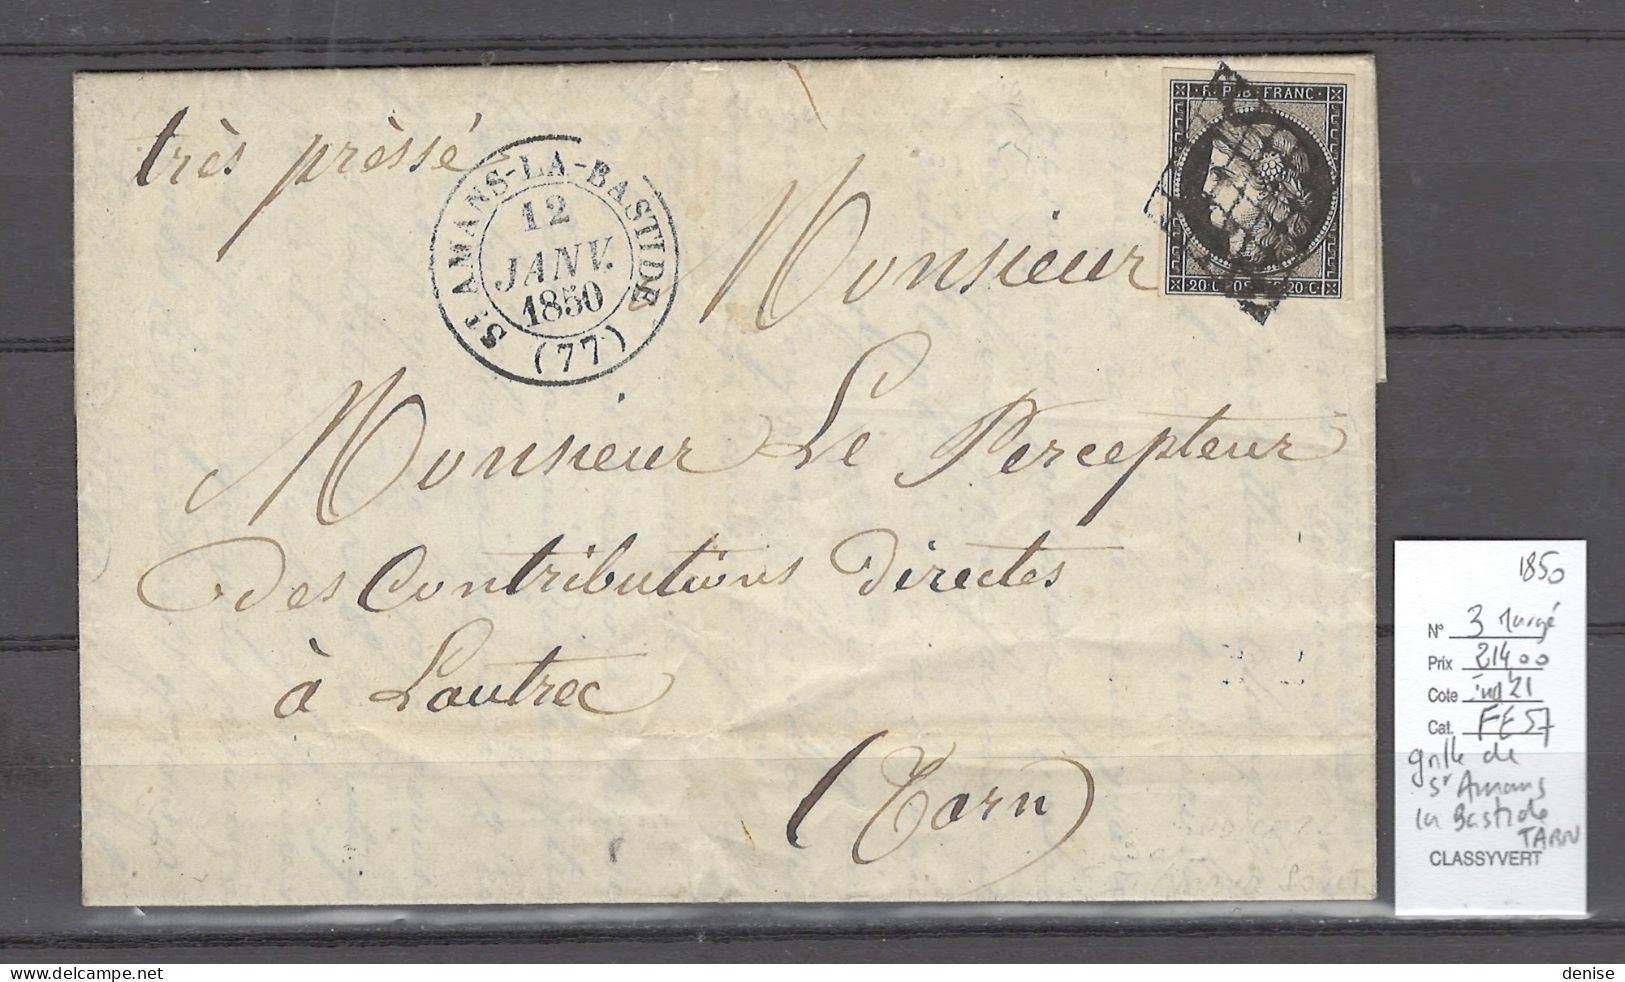 très pressé
ST AMANS-LA-BASTIDE
12
JANV.
1850
(77)
REPUB. FRANC.
20·C POSTES 20·C
Monsieur
Monsieur Le Percepteur
Des Contributions Directes
à Lautrec
(Tarn)
1850
N° 3 margé
Prix 21400
Cote ind 21
Cat. FE57
grille de
St Amans
la Bastide
TARN
CLASSYVERT
www.delcampe.net
denise